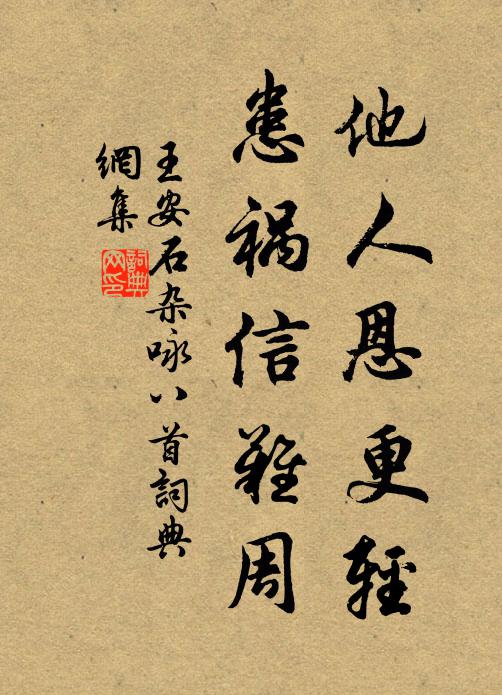 他人恩更輕
患祸信難周
王安石杂咏八首詞典
網集
詞典网印